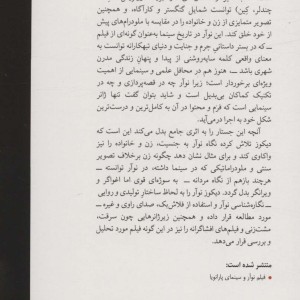 چندلر، کِین) توانست شمایل گنگستر و کارآگاه، و همچنین
تصویر متمایزی از زن و خانواده را در مقایسه با ملودرام‌های پیش
از خود خلق کند. این نوآر در تاریخ سینما به‌عنوان گونه‌ای از فیلم
— که در بستر داستانیِ جرم و جنایت و دنیای تبهکارانه توانست به
معنای واقعی کلمه سایه‌روشنی از پیدا و پنهانِ زندگی مدرن
شهری باشد — هنوز هم در محافل علمی و سینمایی از اهمیت
ویژه‌ای برخوردار است؛ زیرا نوآر چه در دیدگاه و چه در فرم و
تکنیک کماکان بی‌بدیل است و شاید بتوان گفت تنها ژانر
سینمایی است که فرم و محتوا در آن به کامل‌ترین و درست‌ترین
شکل خود به اجرا درمی‌آید.
آنچه این جستار را به اثری جامع بدل می‌کند این است که
دیکوز تلاش کرده نگاه نوآر به جنسیت، زن و خانواده را نیز
واکاوی کند و برای مثال نشان دهد چگونه زن برخلاف تصویر
سنتی و ملودراماتیکی که در سینما داشته، در نوآر توانسته —
هرچند بازهم از نگاه مردانه — به سوژه‌ای قوی اما اغواگر و
ویرانگر بدل گردد. دیکوز نوآر را به لحاظ ساختار تولیدی و روایی
و نگاره‌شناسی نوآر، استفاده از فلاش‌بک، صدای راوی و غیره —
مورد مطالعه قرار داده و همچنین زیرژانرهایی چون سرقت،
مشت‌زنی و فیلم‌های افشاگرانه را نیز در این گونه فیلم مورد تحلیل
و بررسی قرار می‌دهد.
منتشر شده است:
• فیلم نوآر و سینمای پارانویا